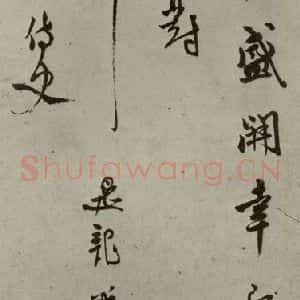 盛開幸
對
是記
侍史
Shufawang.CN